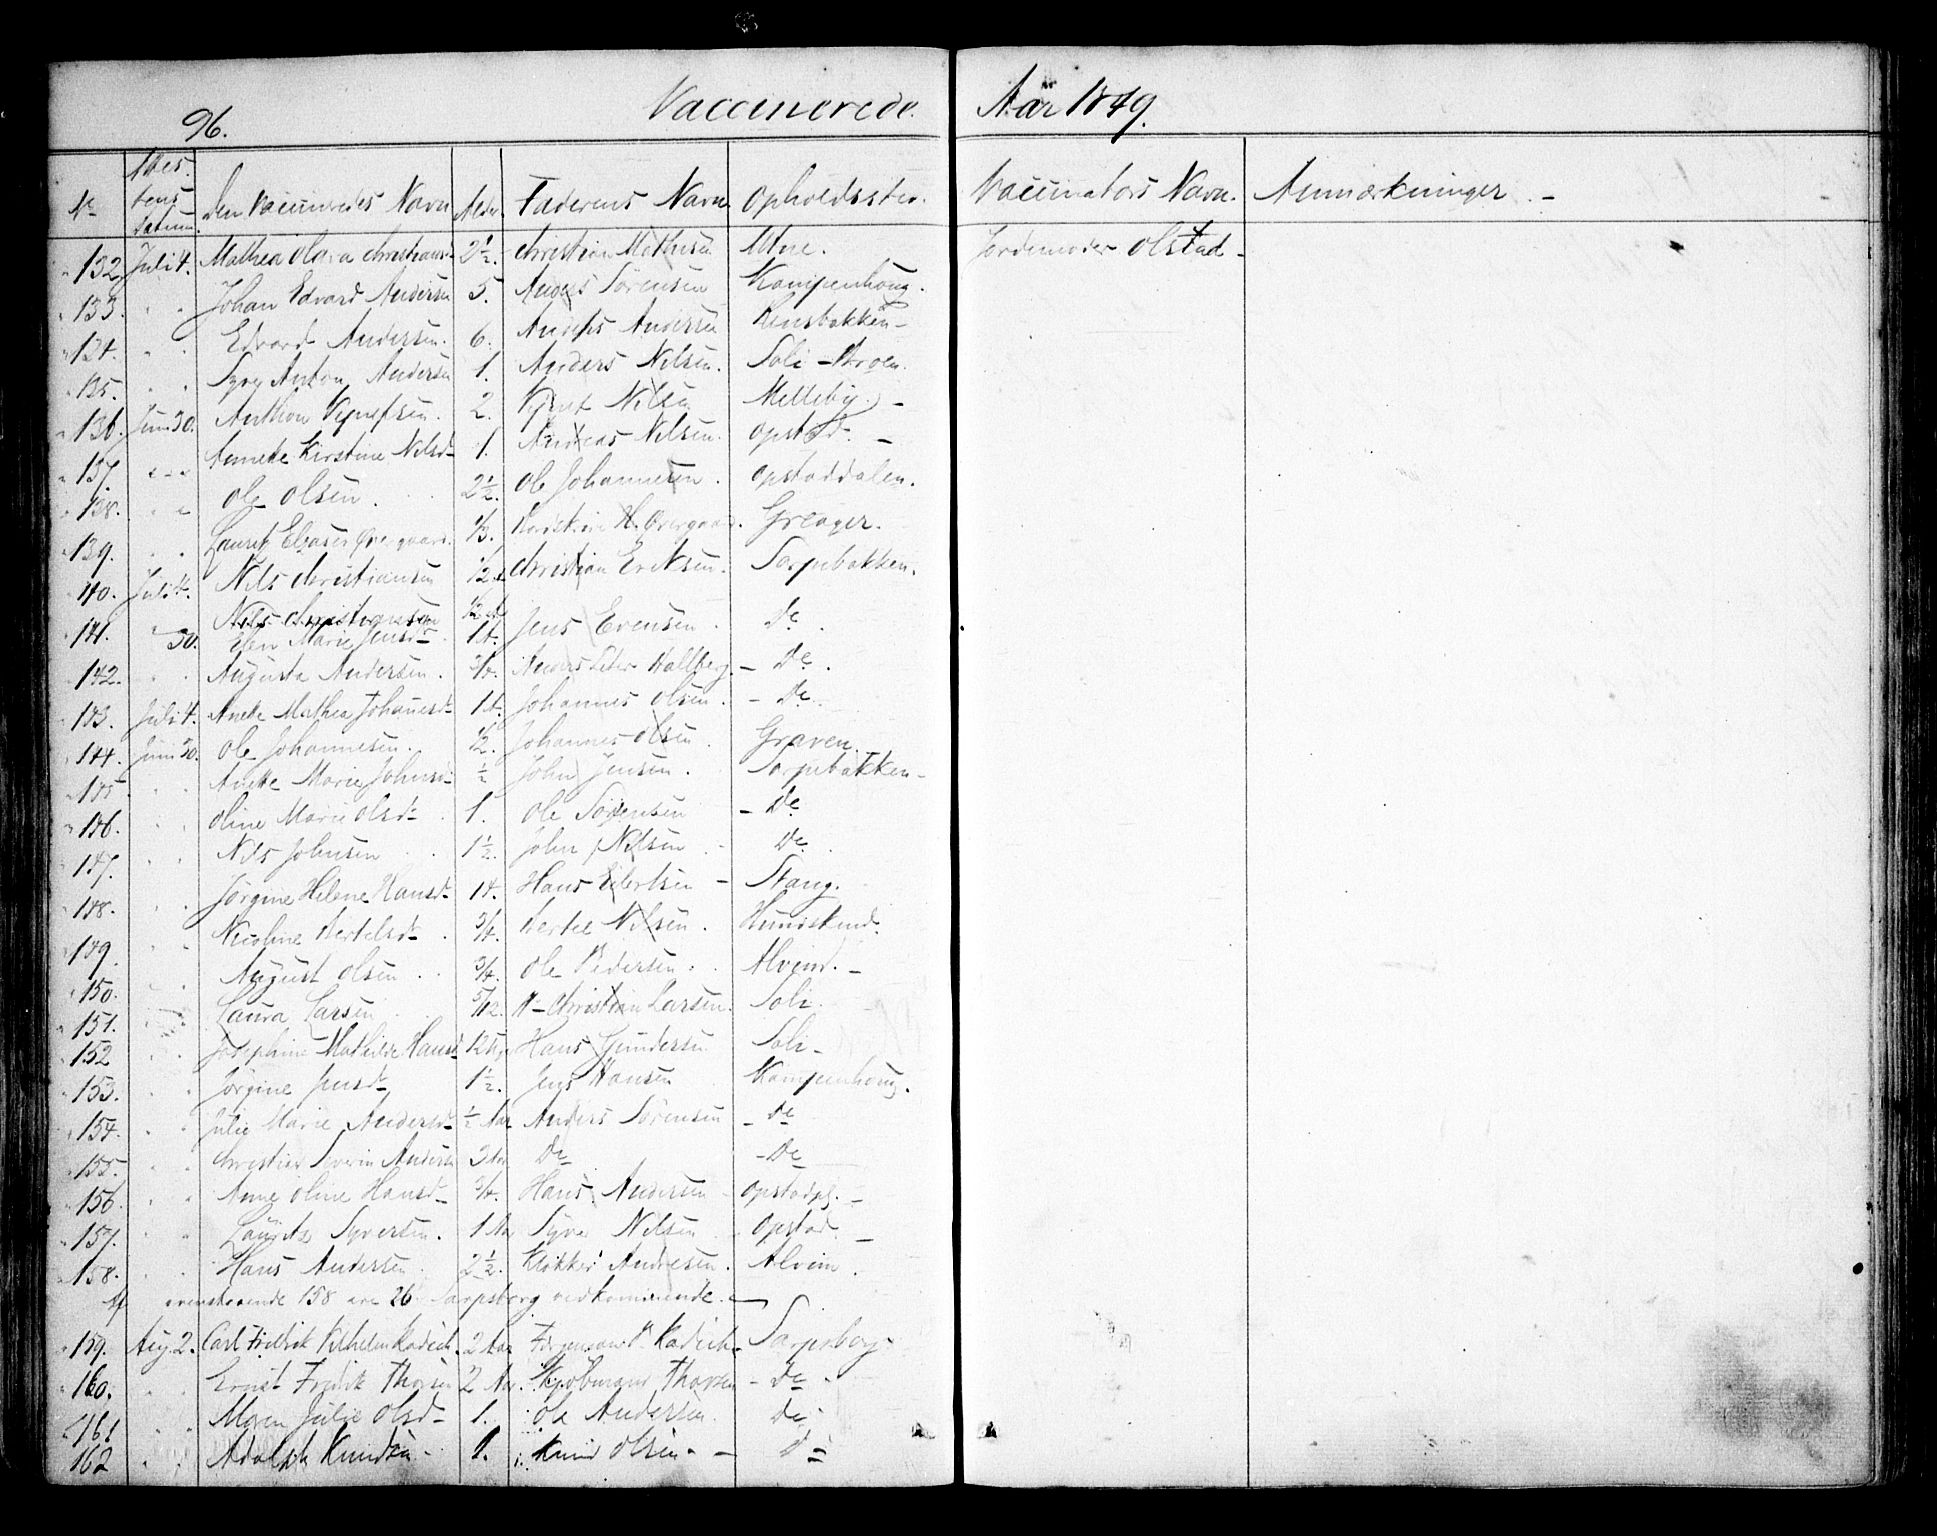 96.
Vaccinerede Aar 1849.
No Attestens Datum. Den Vaccineredes Navn Alder. Faderens Navn Opholdssted. Vaccinators Navn. Anmærkninger. -
132. Juli 4. Mathea Olava Christiansd 2½. Christian Mathisen Utne. Jordemoder Olstad -
133. " " Johan Edvard Andersen 5. Anders Sørensen Kampenhoug.
134. " " Edvard Andersen. 6. Anders Andersen
135. " " Syver Anton Andersen 1. Anders Nilsen. Soli -
136. Juni 30. Anthon 2. Nilsen Melleby. -
137. " - " Annette Kirstine Nilsd- 1. Andreas Nilsen. Opstad. -
138. " " Ole Olsen. 2½. Ole Johannesen. Opstaddalen.
139. " " Overgaard. 1/3. H. Overgaard. Greager.
140. Juli 4. Nils Christiansen 1/2. Christian Eriksen. Sarpebakken.
Nils Christiansen 1/2
141. " 30. Elen Marie Jensd- 1 Jens Evensen. De.
142. " " Augusta Andersen. Anders Peter Hallberg - De.
143. Juli 4. Anette Mathea Johansd- 1 Johannes Olsen. - De.
144. Juni 30. Ole Johannesen. 1/2. Johannes Olsen. Graven.
145. " " Anette Marie Johnsd- ½ John Jensen. Sarpebakken -
146. " " Oline Marie Olsd- 1. Ole Sørensen - De
147. " " Nils Johnsen 1½. John Nilsen - De.
148. " " Jørgine Helene Hansd- 1 Hans Eilertsen - Stang.
149. " " Nicoline Bertelsd- 3/4. Bertel Nilsen. Hundskind.
150. " " August Olsen 3/4. Ole Pedersen. Alvim. -
151. " " Laura Larsen 5/12. Christian Larsen. Soli.
152 " " Josephine Mathilde Hansd 12 Hans Gundersen Soli -
153. " " Jørgine Jensd- 1½. Jens Hansen Kampenhoug.
154. " " Julie Marie Andersd- ½ Aar Anders Sørensen - De
155. " " Christian Severin Andersen 3 Aar De - De
156. " " Anne Oline Hansd- 3/4. Hans Andersen - Opstadpl. -
157. " " Lauritz Syversen. 1 Aar Syver Nilsen Opstad. -
158. " " Hans Andersen. 2½. Klokker Andresen. Alvim.
Af ovenstaaende 158 ere 26 Sarpsborg vedkommende. -
159. Aug 2. Carl Fredrik Vilhelm Radich. 2 Aar P. Radich. Sarpsborg.
160. " " Ernst Fredrik Thorsen 2 Aar. Kjøbmand Thorsen - De -
161 " " Maren Julie Olsd- 1. Ole Andersen. De
162 " " Adolph Knudsen. 1. Knud Olsen. - De